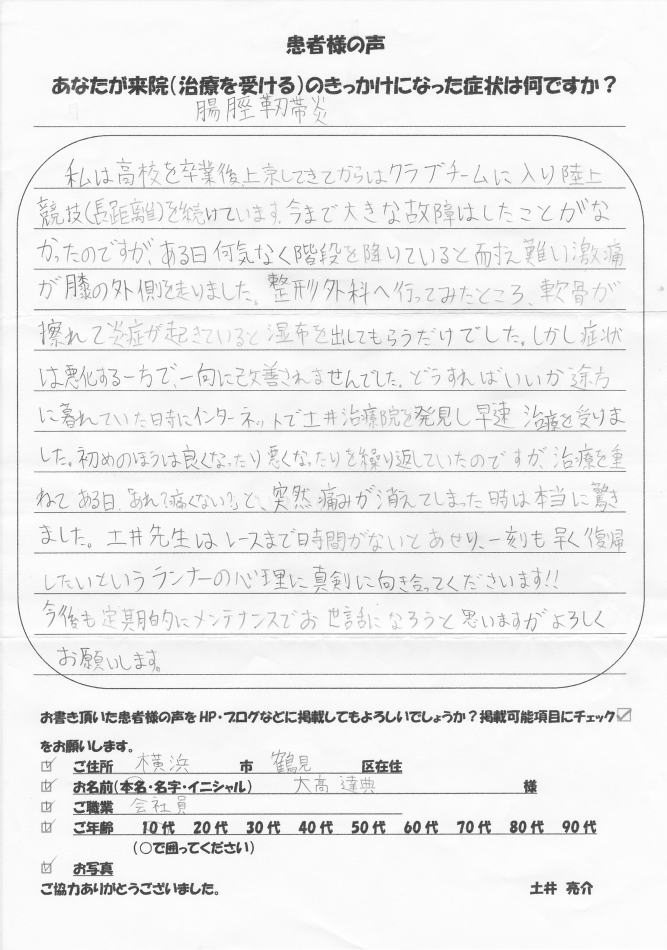 患者様の声
あなたが来院(治療を受ける)のきっかけになった症状は何ですか？
腸脛靭帯炎
私は高校を卒業後、上京してきてからはクラブチームに入り陸上
競技(長距離)を続けています。今まで大きな故障はしたことがな
かったのですが、ある日何気なく階段を降りていると耐え難い激痛
が膝の外側を走りました。整形外科へ行ってみたところ、軟骨が
擦れて炎症が起きていると湿布を出してもらうだけでした。しかし症状
は悪化する一方で、一向に改善されませんでした。どうすればいいか途方
に暮れていた時にインターネットで土井治療院を発見し早速治療を受けま
した。初めのほうは良くなったり悪くなったりを繰り返していたのですが、治療を重
ねてある日、「あれ？痛くない？」と、突然痛みが消えてしまった時は本当に驚き
ました。土井先生はレースまで時間がないとあせり、一刻も早く復帰
したいというランナーの心理に真剣に向き合ってくださいます!!
今後も定期的にメンテナンスでお世話になろうと思いますがよろしく
お願いします。
お書き頂いた患者様の声をHP・ブログなどに掲載してもよろしいでしょうか？掲載可能項目にチェック☑
をお願いします。
☑ ご住所 横浜 市 鶴見 区在住
☑ お名前(本名・名字・イニシャル) 大高 達典 様
☑ ご職業 会社員
☑ ご年齢 10代 20代 30代 40代 50代 60代 70代 80代 90代
(○で囲ってください)
☑ お写真
ご協力ありがとうございました。 土井 亮介